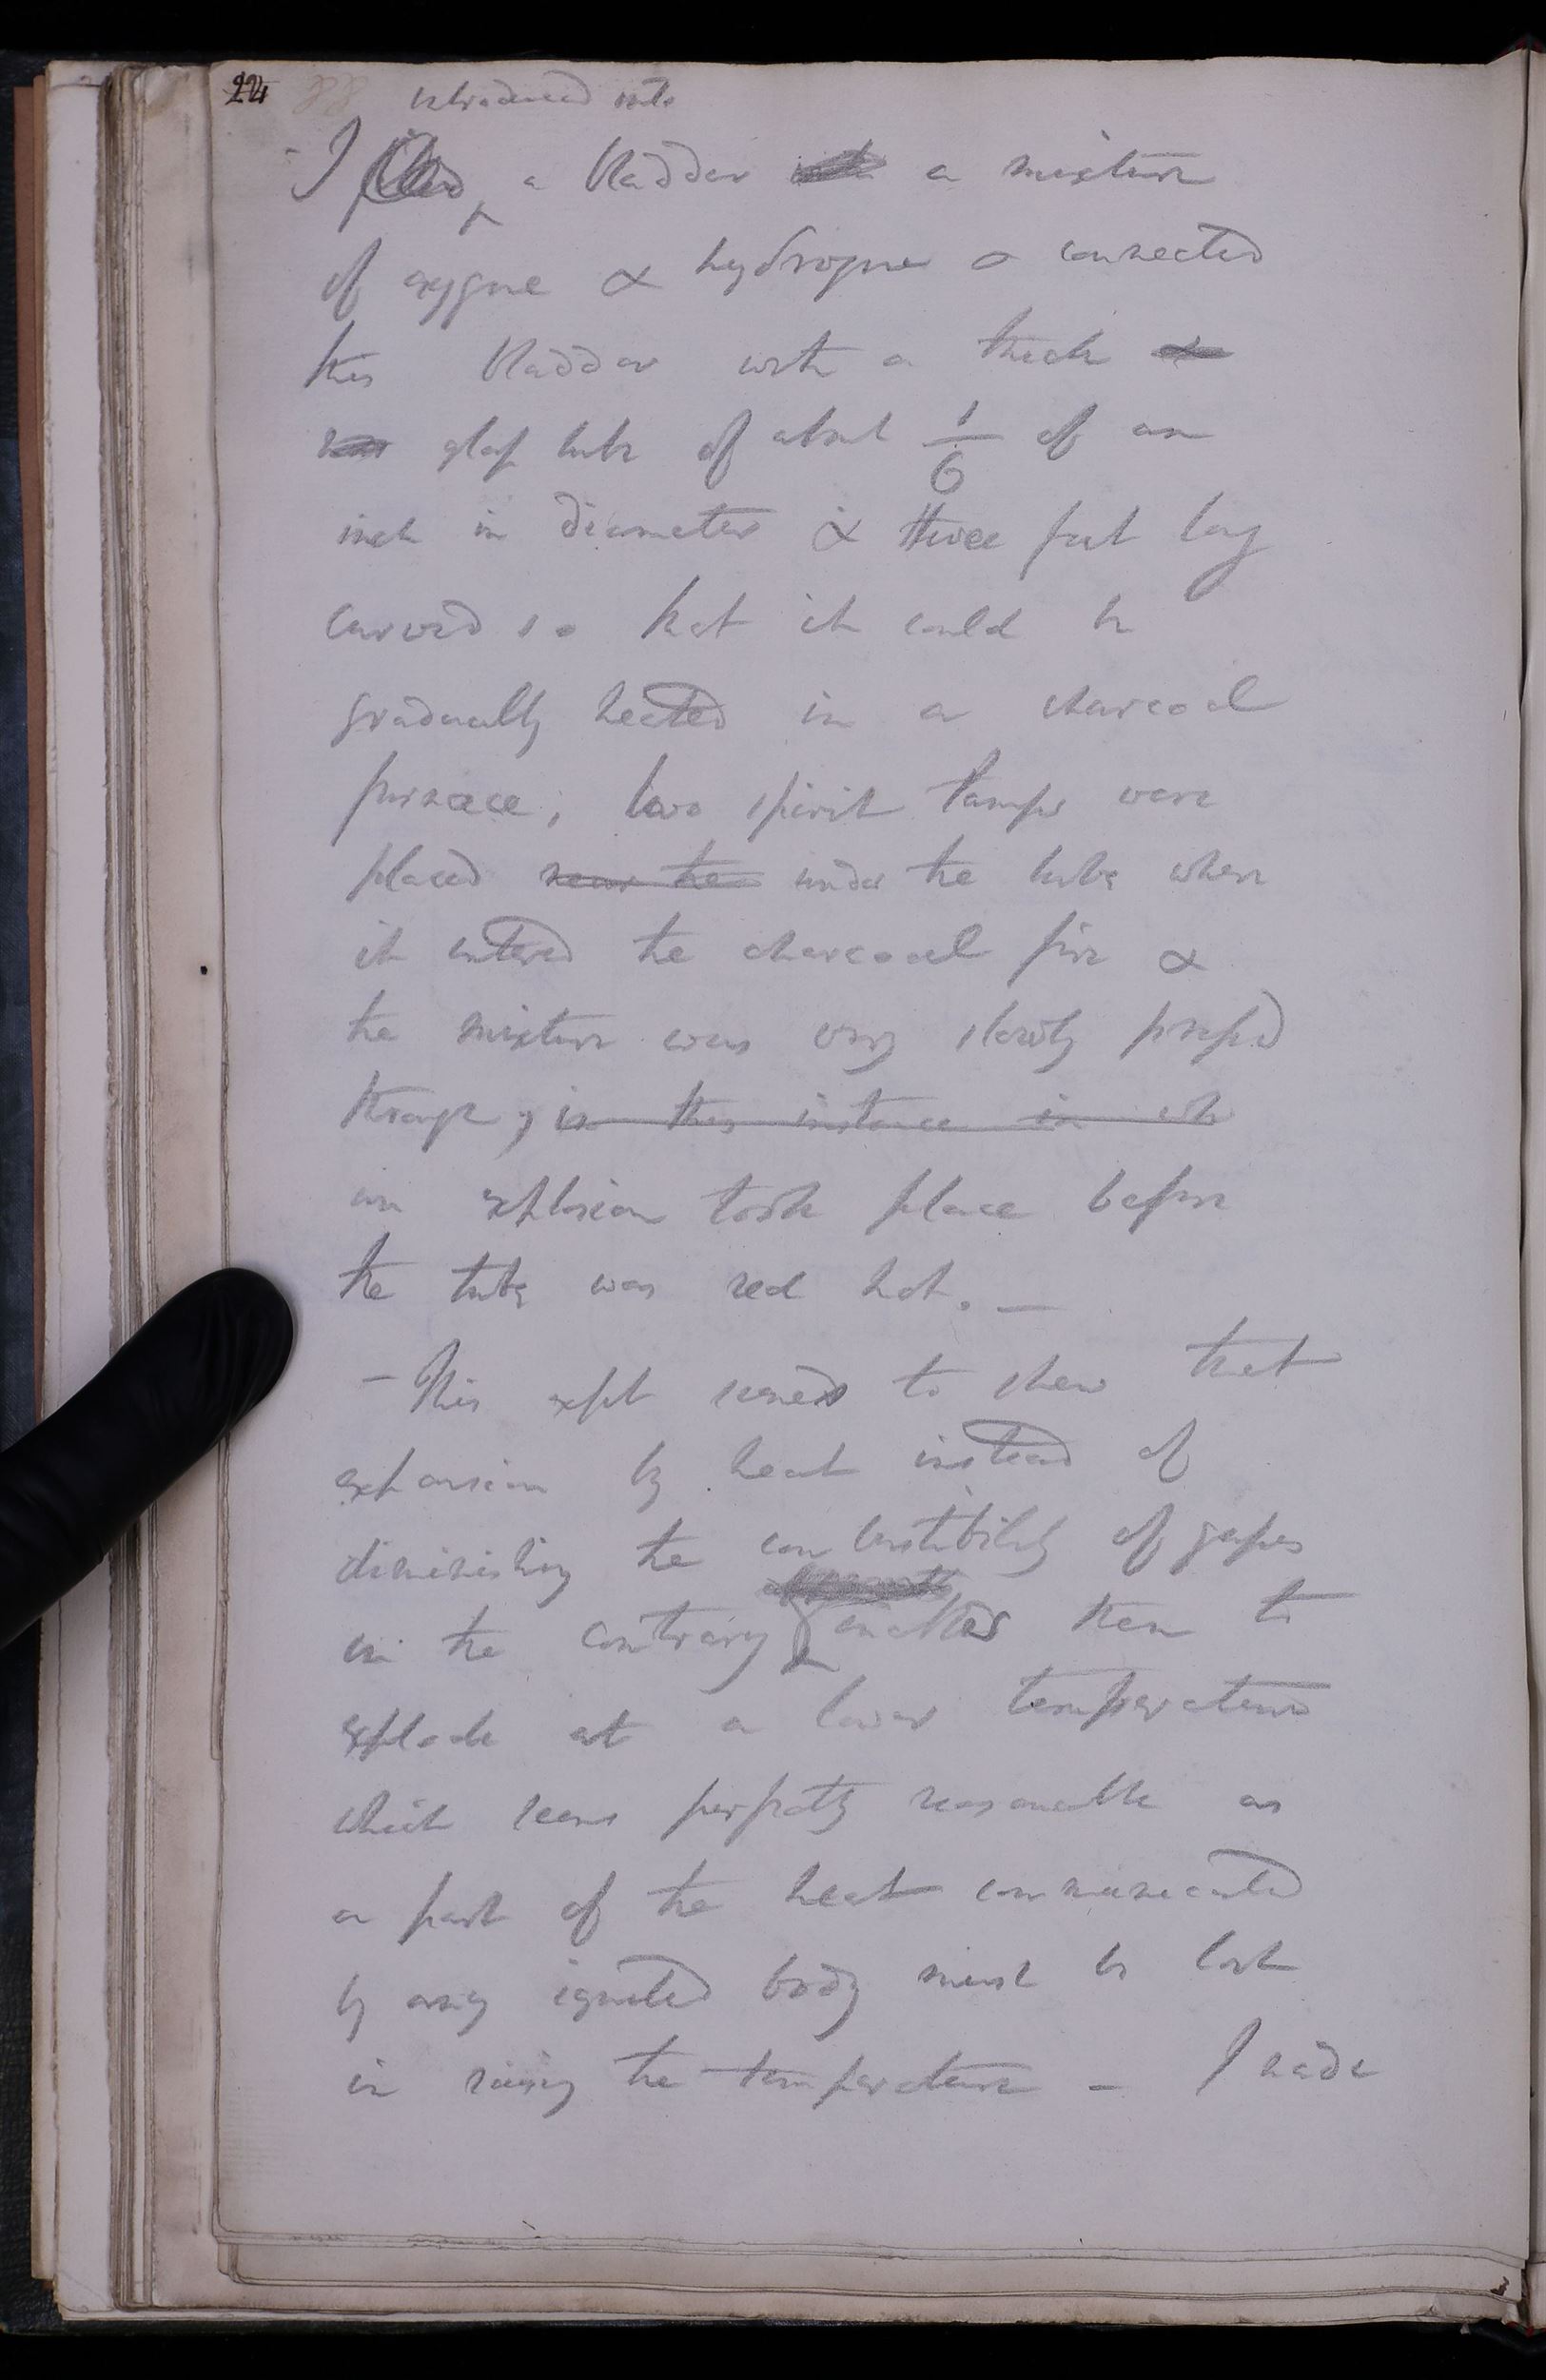 introduced into
- I filled a bladder with a mixture
of oxygene & hydrogene & connected
this bladder with a thick
glass tube of about 1/6 of an
inch in diameter & three feet long
curved so that it could be
gradually heated in a charcoal
furnace; two spirit lamps were
placed near the under the tube where
it entered the charcoal fire &
the mixture was very slowly pressed
through; in this instance in wh
an explosion took place before
the tube was red hot. —
- This expt seemed to shew that
expansion by heat instead of
diminishing the combustibility of gases
on the contrary enables them to
explode at a lower temperature
which seems perfectly reasonable as
a part of the heat communicated
by any ignited body must be lost
in raising the temperature — I made